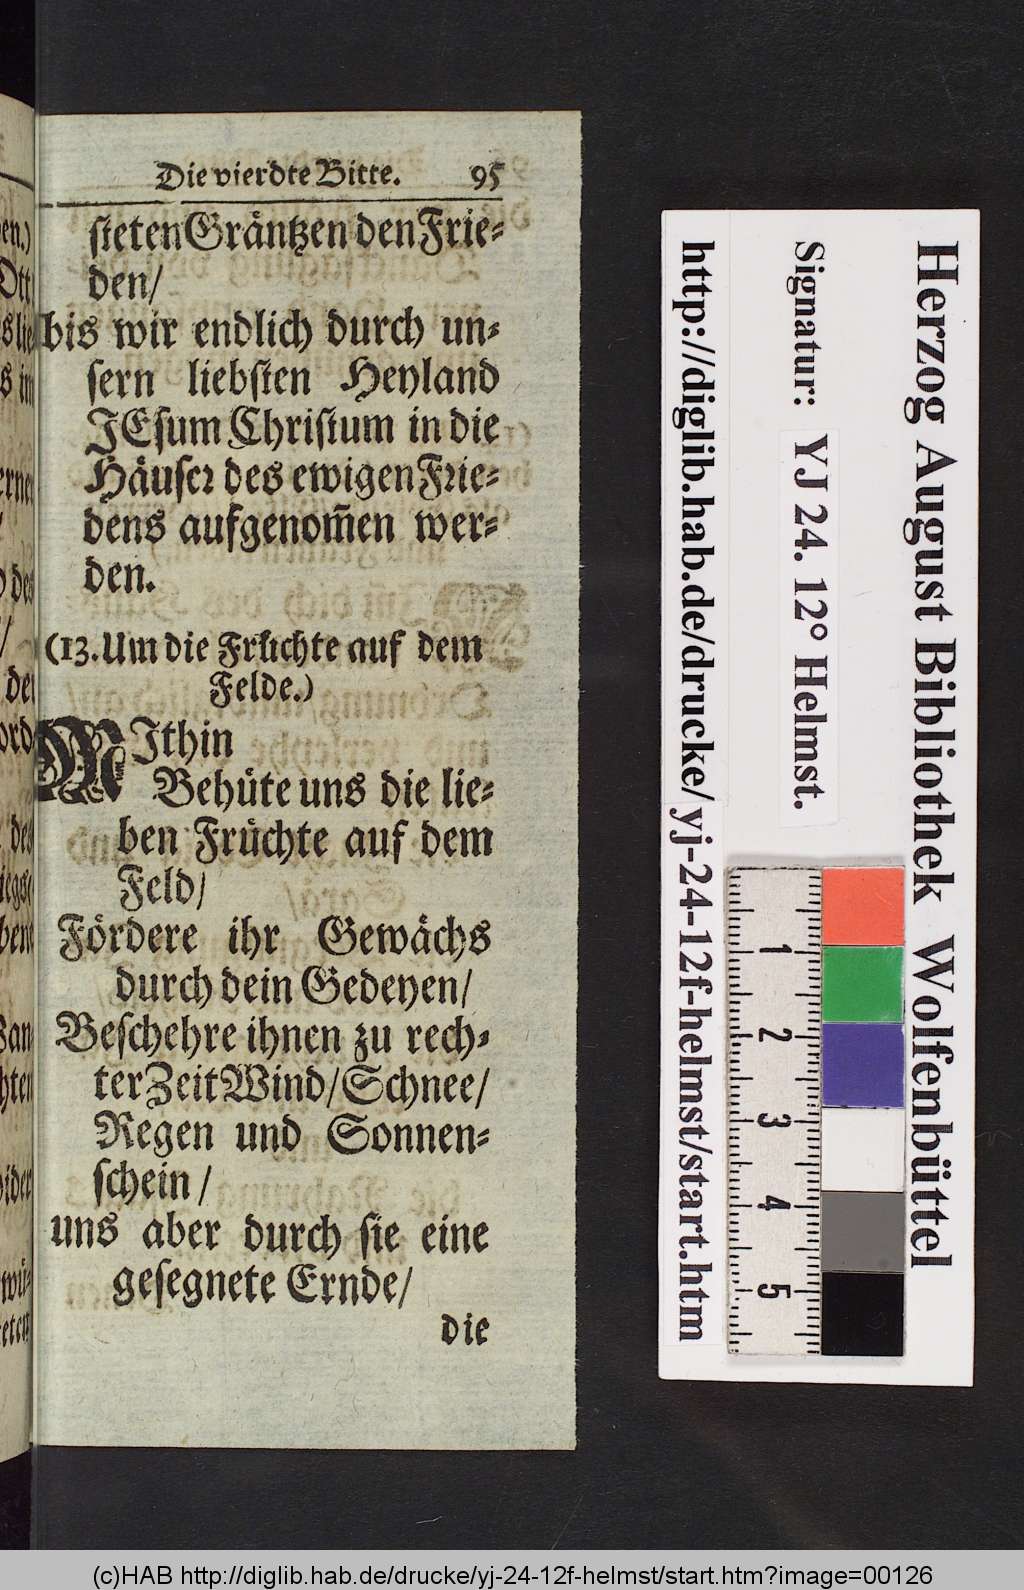 Die vierdte Bitte. 95
ſteten Gräntzen den Frie-
den/
bis wir endlich durch un-
ſern liebſten Heyland
JEſum Chriſtum in die
Häuſer des ewigen Frie-
dens aufgenom̃en wer-
den.
(13. Um die Früchte auf dem
Felde.)
MIthin
Behüte uns die lie-
ben Früchte auf dem
Feld/
Fördere ihr Gewächs
durch dein Gedeyen/
Beſchehre ihnen zu rech-
ter Zeit Wind/ Schnee/
Regen und Sonnen-
ſchein/
uns aber durch ſie eine
geſegnete Ernde/
die
Herzog August Bibliothek Wolfenbüttel
Signatur: YJ 24. 12° Helmst.
http://diglib.hab.de/drucke/yj-24-12f-helmst/start.htm
1
2
3
4
5
(c)HAB http://diglib.hab.de/drucke/yj-24-12f-helmst/start.htm?image=00126